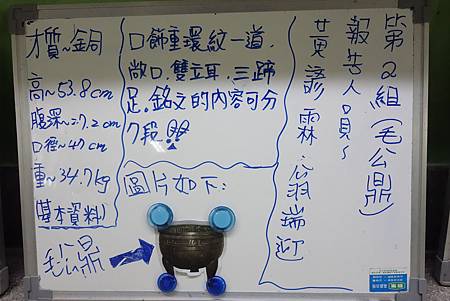 第2組(毛公鼎)
報告人員~
黃諺霖、翁瑞迎
口飾重環紋一道，
敞口、雙立耳、三蹄
足。銘文的內容可分
7段。
圖片如下：
材質~銅
高~53.8cm
腹深~27.2cm
口徑~47cm
重~34.7kg
(基本資料)
毛公鼎